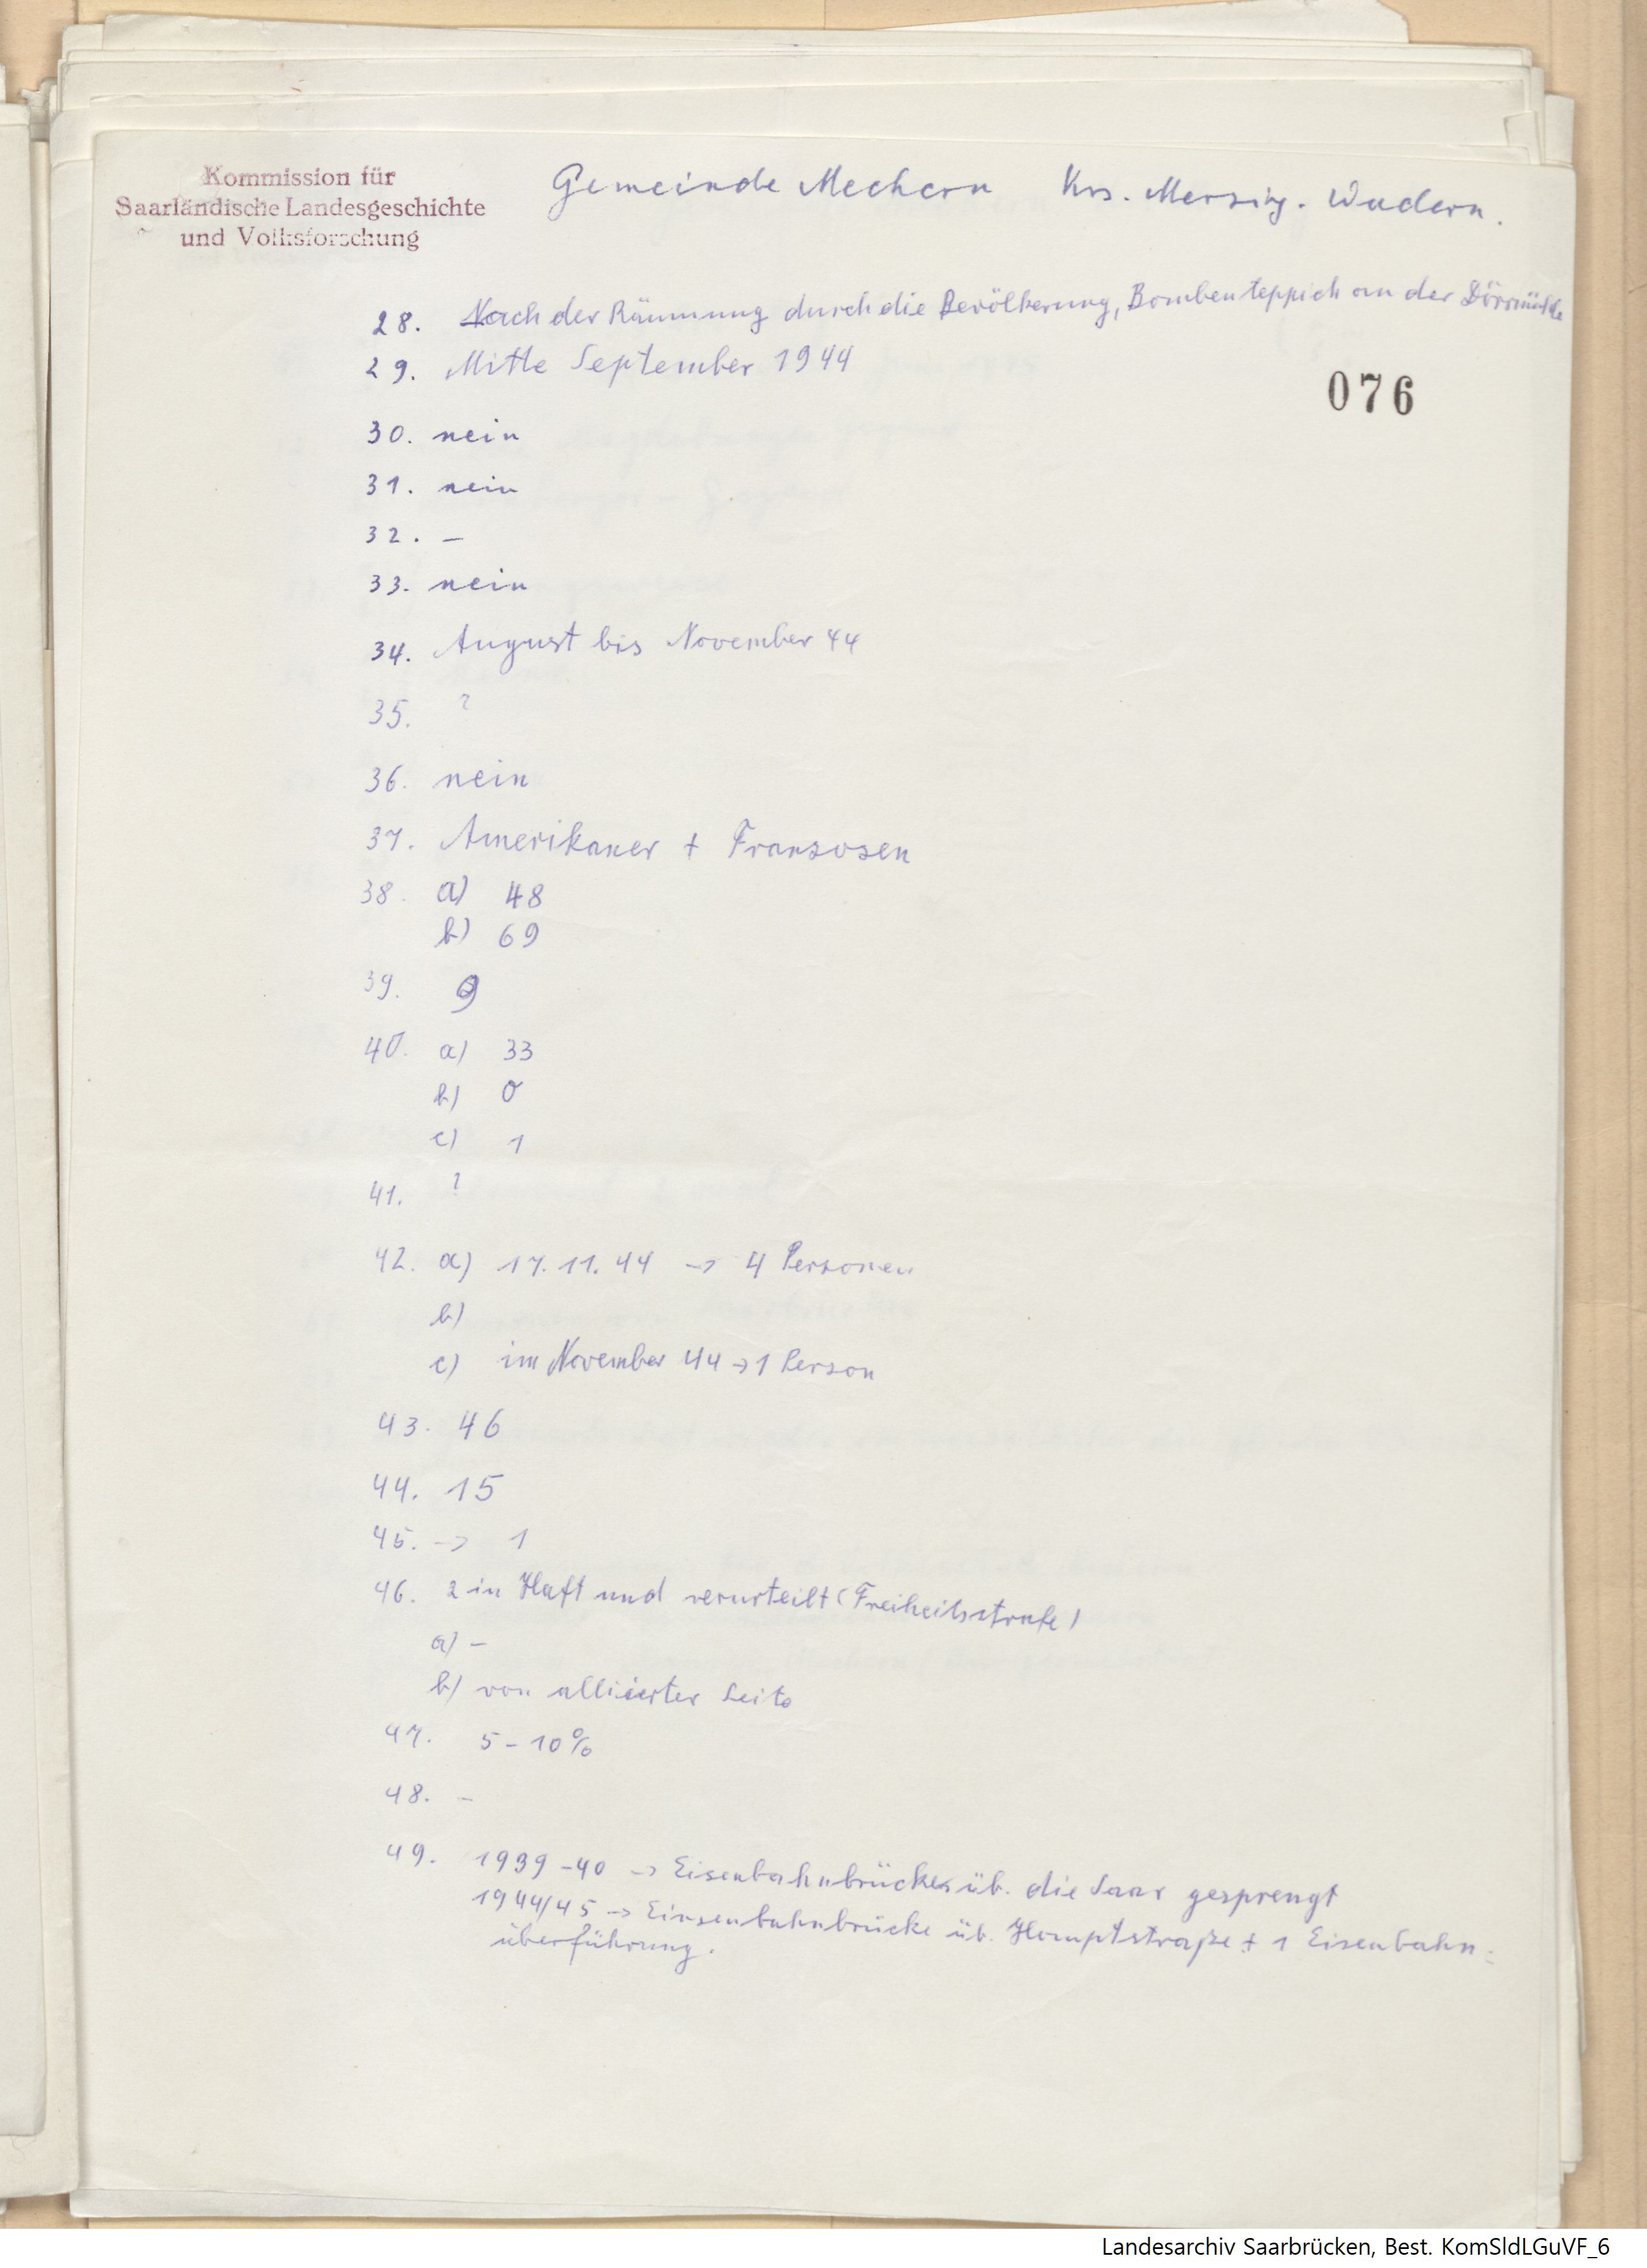 Kommission für
Saarländische Landesgeschichte
und Volksforschung
Gemeinde Mechern Krs. Merzig-Wadern.
28. Nach der Räumung durch die Bevölkerung, Bombenteppich an der Dörrmühle
29. Mitte September 1944
076
30. nein
31. nein
32. –
33. nein
34. August bis November 44
35. ?
36. nein
37. Amerikaner + Franzosen
38. a) 48
b) 69
39. 9
40. a) 33
b) 0
c) 1
41. ?
42. a) 17.11.44 -> 4 Personen
b)
c) im November 44 -> 1 Person
43. 46
44. 15
45. -> 1
46. 2 in Haft und verurteilt (Freiheitsstrafe)
a) –
b) von alliierter Seite
47. 5-10%
48. –
49. 1939-40 -> Eisenbahnbrücke üb. die Saar gesprengt
1944/45 -> Einsenbahnbrücke üb. Hauptstraße + 1 Eisenbahn-
überführung.
Landesarchiv Saarbrücken, Best. KomSldLGuVF_6